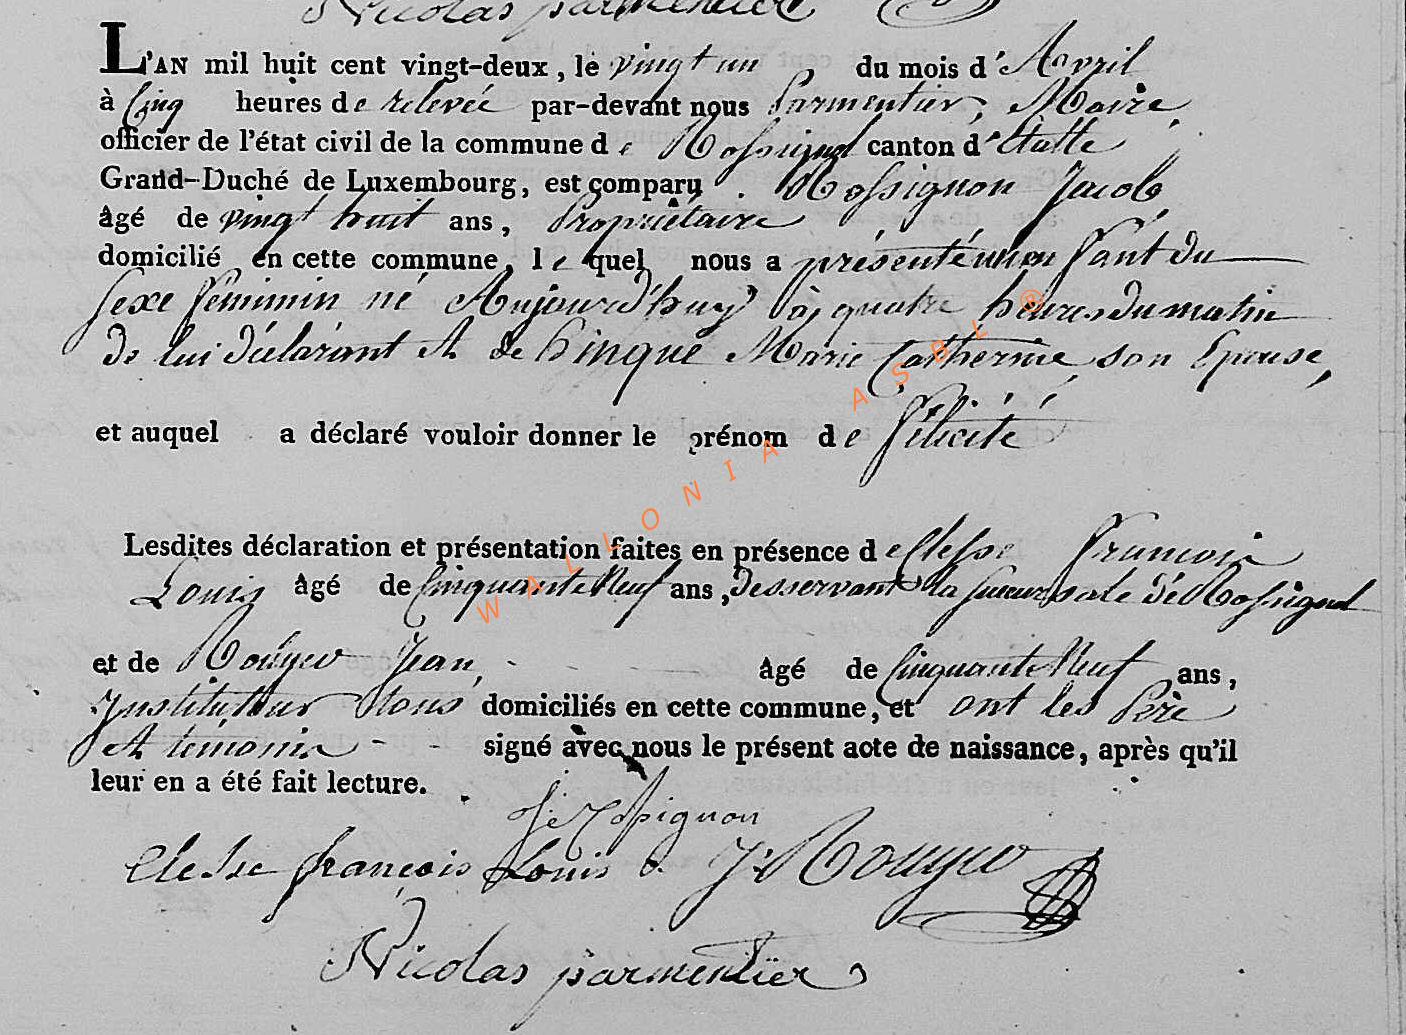 Nicolas parmentier
L'AN mil huit cent vingt-deux, le vingt un du mois d'Avril
à Cinq heures de relevée par-devant nous Parmentier, Maire
officier de l'état civil de la commune de Rossignol canton d'Etalle
Grand-Duché de Luxembourg, est comparu Rossignon Jacob
âgé de vingt huit ans, Propriétaire
domicilié en cette commune, lequel nous a présenté un enfant du
sexe féminin né Aujourd'huy à quatre heures du matin
de lui déclarant Et de Hinque Marie Catherine son Epouse,
et auquel a déclaré vouloir donner le prénom de Félicité
Lesdites déclaration et présentation faites en présence de Clesse Francois
Louis âgé de Cinquante Neuf ans, Desservant la Succursale de Rossignol
et de Rougeo Jean, âgé de Cinquante Neuf ans,
Instituteur tous domiciliés en cette commune, et ont les Père
Et temoins signé avec nous le présent acte de naissance, après qu'il
leur en a été fait lecture.
J: Rossignon
Clesse françois Louis J: Rougeo
Nicolas parmentier
WALLONIA ASBL ®